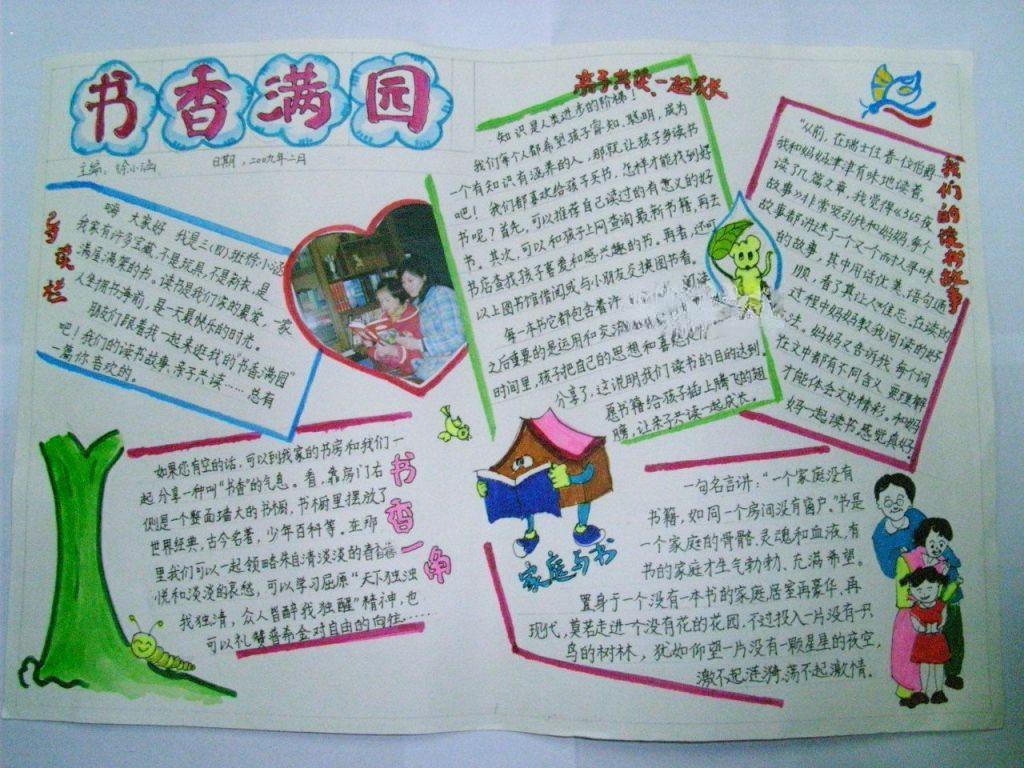 书香满园
主编：徐小涵
日期，2009年二月
导读栏
嗨 大家好 我是三（四）班徐小涵
我家有许多宝藏，不是玩具，不是新衣，是
满屋满架的书。读书是我们家的最爱，一家
人坐拥书海前，是一天最快乐的时光。
朋友们跟着我一起来逛我的"书香满园"
吧！我们的读书故事、亲子共读……总有
一篇你喜欢的。
书香一角
如果您有空的话，可以到我家的书房和我们一
起分享一种叫"书香"的气息。看，靠房门右
侧是一个整面墙大的书橱，书橱里摆放了
世界经典，古今名著，少年百科等。在那
里我们可以一起领略朱自清淡淡的喜
悦和淡淡的哀愁，可以学习屈原"天下独浊
我独清，众人皆醉我独醒"精神，也
可以礼赞普希金对自由的向往……
亲子共读、一起成长
知识是人类进步的阶梯！
我们每个人都希望孩子睿知、聪明，成为
一个有知识有涵养的人，那就让孩子多读书
吧！我们都喜欢给孩子买书，怎样才能找到好
书呢？首先，可以推荐自己读过的有意义的好
书。其次，可以和孩子上网查询最新书籍，再去
书店查找孩子喜爱和感兴趣的书。再者，还可
以上图书馆借阅或与小朋友交换图书看。
每一本书它都包含着许
阅读
之后重要的是运用和交流
时间里，孩子把自己的思想和喜怒
分享了，这说明我们读书的目的达到。
愿书籍给孩子插上腾飞的翅
膀，让亲子共读一起成长。
我们的读书故事
"从前，在瑞士住着一位伯爵
我和妈妈津津有味地读着。
读了几篇文章，我觉得《365夜
故事》非常吸引我和妈妈，每个
故事都讲述了一个又一个而扣人寻味
的故事，其中用话优美、语句通
顺，看了真让人难忘，在读的
过程中妈妈教我阅读的好
法。妈妈又告诉我，每个词
在文中都有不同含义，要理解
才能体会文中精彩。和妈
妈一起读书感觉真好
家庭与书
一句名言讲："一个家庭没有
书籍，如同一个房间没有窗户。"书是
一个家庭的骨骼、灵魂和血液，有
书的家庭才生气勃勃、充满希望。
置身于一个没有一本书的家庭居室再豪华、再
现代，莫若走进一个没有花的花园，不过投入一片没有一只
鸟的树林，犹如仰望一片没有一颗星星的夜空，
激不起涟漪，荡不起激情。